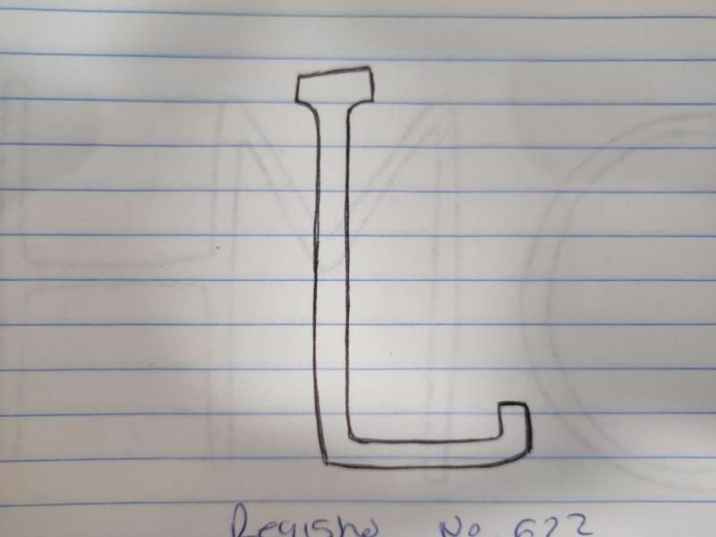 L
Registro No 622